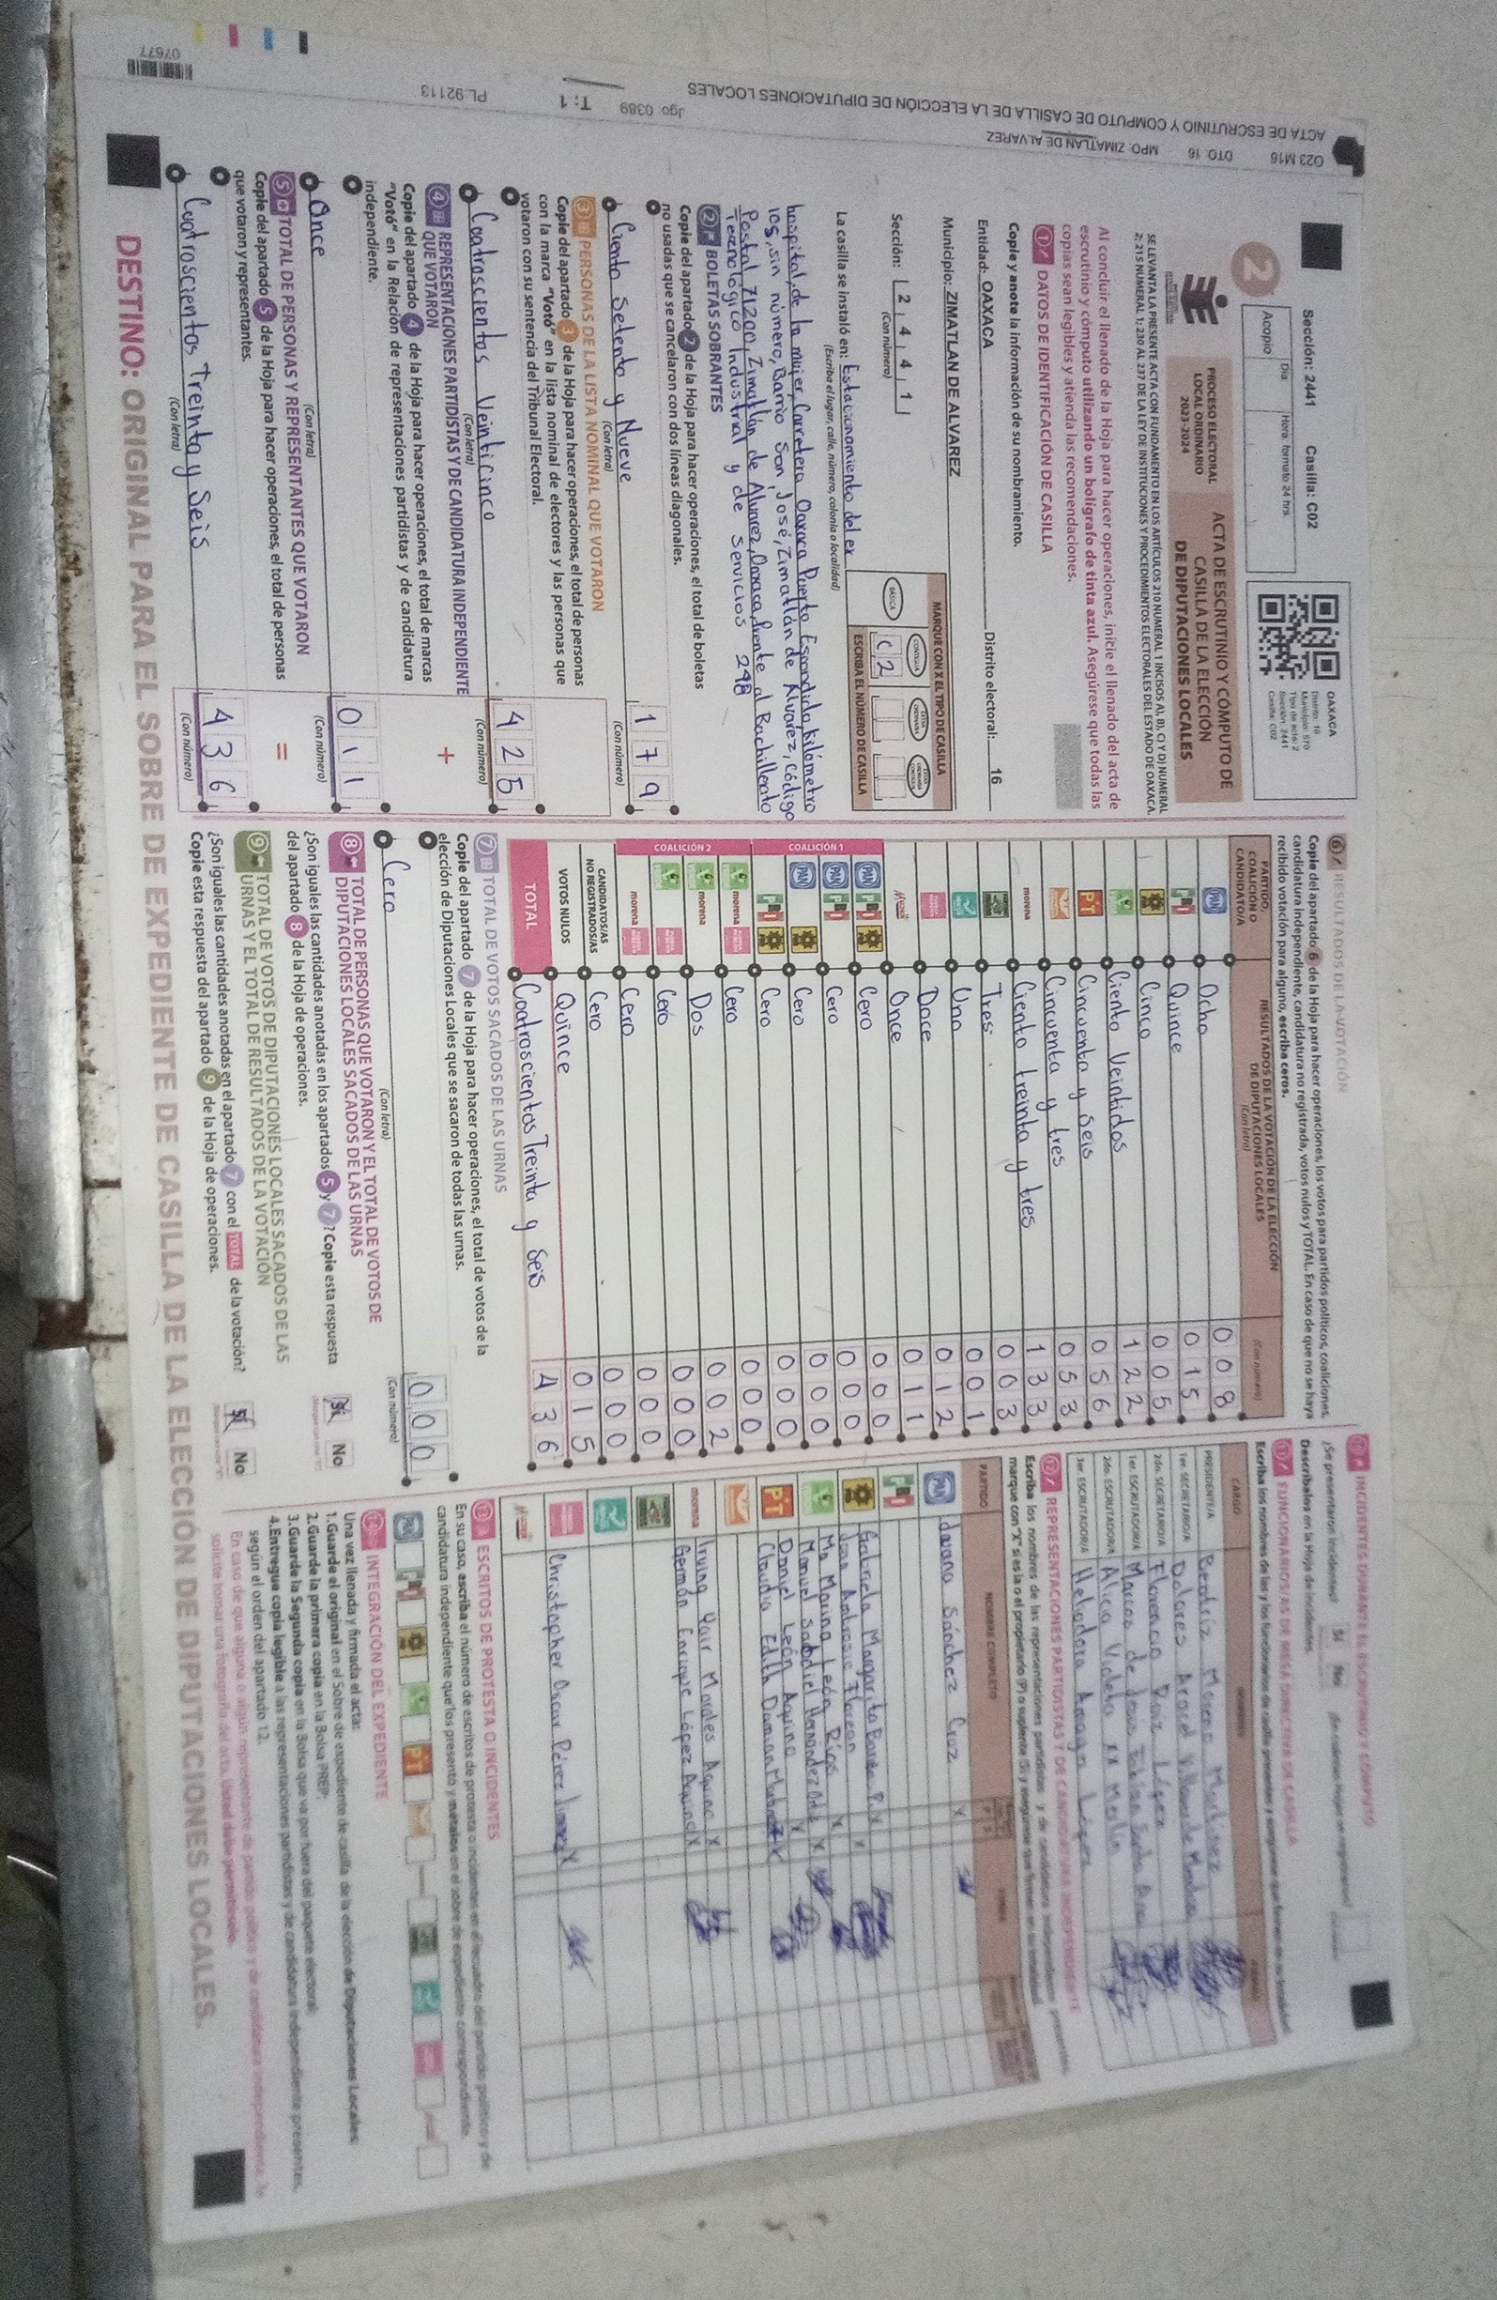 Sección: 2441 Casilla: C02
OAXACA
Distrito: 16
Municipio: 570
Tipo de acta: 2
Sección: 2441
Casilla: C02
Acopio
Día
Hora: formato 24 hrs
2
PROCESO ELECTORAL
LOCAL ORDINARIO
2023-2024
ACTA DE ESCRUTINIO Y CÓMPUTO DE
CASILLA DE LA ELECCIÓN
DE DIPUTACIONES LOCALES
SE LEVANTA LA PRESENTE ACTA CON FUNDAMENTO EN LOS ARTÍCULOS 210 NUMERAL 1 INCISOS A), B), C) Y D) NUMERAL
2; 215 NUMERAL 1; 230 AL 237 DE LA LEY DE INSTITUCIONES Y PROCEDIMIENTOS ELECTORALES DEL ESTADO DE OAXACA.
Al concluir el llenado de la Hoja para hacer operaciones, inicie el llenado del acta de
escrutinio y cómputo utilizando un bolígrafo de tinta azul. Asegúrese que todas las
copias sean legibles y atienda las recomendaciones.
1 DATOS DE IDENTIFICACIÓN DE CASILLA
Copie y anote la información de su nombramiento.
Entidad: OAXACA Distrito electoral: 16
Municipio: ZIMATLAN DE ALVAREZ
Sección: 2 4 4 1
(Con número)
MARQUE CON X EL TIPO DE CASILLA
BÁSICA
CONTIGUA
ESCRIBA EL NÚMERO DE CASILLA
C 2
La casilla se instaló en: Estacionamiento del ex
(Escriba el lugar, calle, número, colonia o localidad)
hospital, de la mujer, Carretera Oaxaca Puerto Escondido, kilómetro
ios, sin número, Barrio San José, Zimatlán de Alvarez, Código
Postal 71200, Zimatlán de Alvarez, Oaxaca, frente al Bachillerato
Tecnológico Industrial y de servicios 248
2 BOLETAS SOBRANTES
Copie del apartado 2 de la Hoja para hacer operaciones, el total de boletas
no usadas que se cancelaron con dos líneas diagonales.
Ciento Setenta y Nueve
(Con letra)
1 7 9
(Con número)
3 PERSONAS DE LA LISTA NOMINAL QUE VOTARON
Copie del apartado 3 de la Hoja para hacer operaciones, el total de personas
con la marca "Votó" en la lista nominal de electores y las personas que
votaron con su sentencia del Tribunal Electoral.
Coatroscientos Veinticinco
(Con letra)
4 2 5
(Con número)
4 REPRESENTACIONES PARTIDISTAS Y DE CANDIDATURA INDEPENDIENTE
QUE VOTARON
+
Copie del apartado 4 de la Hoja para hacer operaciones, el total de marcas
"Votó" en la Relación de representaciones partidistas y de candidatura
independiente.
Once
(Con letra)
0 1 1
(Con número)
5 TOTAL DE PERSONAS Y REPRESENTANTES QUE VOTARON
=
Copie del apartado 5 de la Hoja para hacer operaciones, el total de personas
que votaron y representantes.
Coatroscientos Treinta y Seis
(Con letra)
4 3 6
(Con número)
6 RESULTADOS DE LA VOTACIÓN
Copie del apartado 6 de la Hoja para hacer operaciones, los votos para partidos políticos, coaliciones,
candidatura independiente, candidatura no registrada, votos nulos y TOTAL. En caso de que no se haya
recibido votación para alguno, escriba ceros.
PARTIDO,
COALICIÓN O
CANDIDATO/A
RESULTADOS DE LA VOTACIÓN DE LA ELECCIÓN
DE DIPUTACIONES LOCALES
(Con letra)
(Con número)
PAN Ocho 0 0 8
PRI Quince 0 1 5
Cinco 0 0 5
Ciento Veintidos 1 2 2
PT Cincuenta y seis 0 5 6
Cincuenta y tres 0 5 3
morena Ciento treinta y tres 1 3 3
Tres 0 0 3
Uno 0 0 1
Doce 0 1 2
Once 0 1 1
COALICIÓN 1
PAN PRI Cero 0 0 0
PAN PRI Cero 0 0 0
PAN Cero 0 0 0
PRI Cero 0 0 0
COALICIÓN 2
morena Cero 0 0 0
morena Dos 0 0 2
Cero 0 0 0
morena Cero 0 0 0
CANDIDATOS/AS
NO REGISTRADOS/AS Cero 0 0 0
VOTOS NULOS Quince 0 1 5
TOTAL Coatroscientos Treinta y Seis 4 3 6
7 TOTAL DE VOTOS SACADOS DE LAS URNAS
Copie del apartado 7 de la Hoja para hacer operaciones, el total de votos de la
elección de Diputaciones Locales que se sacaron de todas las urnas.
Cero
(Con letra)
0 0 0
(Con número)
8 TOTAL DE PERSONAS QUE VOTARON Y EL TOTAL DE VOTOS DE
DIPUTACIONES LOCALES SACADOS DE LAS URNAS
¿Son iguales las cantidades anotadas en los apartados 5 y 7? Copie esta respuesta
del apartado 8 de la Hoja de operaciones.
Sí No
9 TOTAL DE VOTOS DE DIPUTACIONES LOCALES SACADOS DE LAS
URNAS Y EL TOTAL DE RESULTADOS DE LA VOTACIÓN
¿Son iguales las cantidades anotadas en el apartado 7 con el TOTAL de la votación?
Copie esta respuesta del apartado 9 de la Hoja de operaciones.
Sí No
10 INCIDENTES DURANTE EL ESCRUTINIO Y CÓMPUTO
¿Se presentaron incidentes? Sí No
Descríbalos en la Hoja de incidentes.
11 FUNCIONARIOS/AS DE MESA DIRECTIVA DE CASILLA
Escriba los nombres de las y los funcionarios de casilla presentes y asegúrese que firmen en su totalidad.
CARGO
PRESIDENTE/A Beatriz Moreno Martinez
1er. SECRETARIO/A Dolores Aracel
2do. SECRETARIO/A Florencio Ruiz López
1er. ESCRUTADOR/A Marcos de Jesus
2do. ESCRUTADOR/A Alicia Violeta
3er. ESCRUTADOR/A Heliodora Amaya López
12 REPRESENTACIONES PARTIDISTAS Y DE CANDIDATURA INDEPENDIENTE
Escriba los nombres de las representaciones partidistas y de candidatura independiente presentes,
marque con "X" si es la o el propietario (P) o suplente (S) y asegúrese que firmen en su totalidad.
PARTIDO NOMBRE COMPLETO
PAN daiana Sánchez Cruz X
PRI
Gabriela Margarita X
Ma Marina León Ríos X
Manuel Sabdiel Hernández X
PT Daniel León Aquino X
Claudia Edith Damian X
morena Irving Yair Morales Aquino X
Germán Enrique López Aquino X
Christopher Oscar Pérez Jimenez X
13 ESCRITOS DE PROTESTA O INCIDENTES
En su caso, escriba el número de escritos de protesta o incidentes en el recuadro del partido político y de
candidatura independiente que los presentó y métalos en el sobre de expediente correspondiente.
14 INTEGRACIÓN DEL EXPEDIENTE
Una vez llenada y firmada el acta:
1. Guarde el original en el Sobre de expediente de casilla de la elección de Diputaciones Locales;
2. Guarde la primera copia en la Bolsa PREP;
3. Guarde la Segunda copia en la Bolsa que va por fuera del paquete electoral;
4. Entregue copia legible a las representaciones partidistas y de candidatura independiente presentes,
según el orden del apartado 12.
En caso de que alguna o algún representante de partido político y de candidatura independiente, le
solicite tomar una fotografía del acta, Usted debe permitírselo.
DESTINO: ORIGINAL PARA EL SOBRE DE EXPEDIENTE DE CASILLA DE LA ELECCIÓN DE DIPUTACIONES LOCALES.
O23 M16 DTO: 16 MPO: ZIMATLAN DE ALVAREZ
ACTA DE ESCRUTINIO Y COMPUTO DE CASILLA DE LA ELECCIÓN DE DIPUTACIONES LOCALES
Jgo: 0389 T: 1 PL:92113
07677